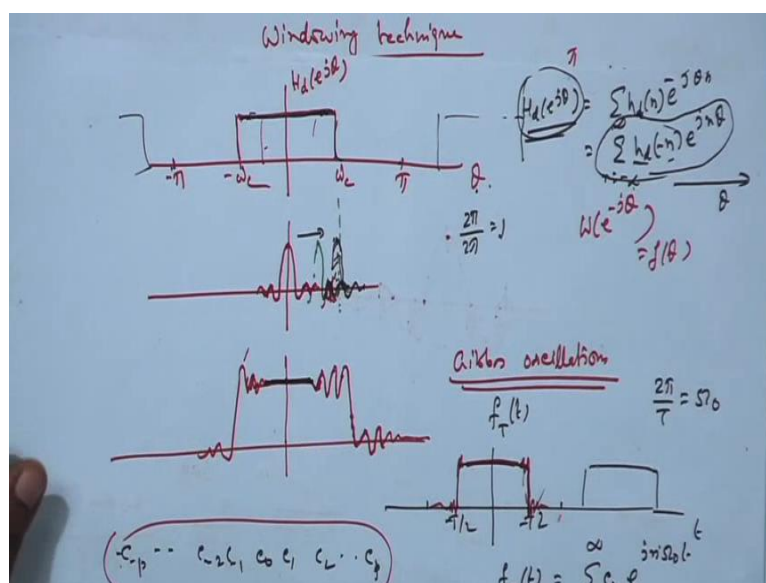 Windowing technique
H_d(e^{jθ})
π
H_d(e^{jθ}) = ∑ h_d(n) e^{-jθn}
= ∑ h_d(-n) e^{jnθ}
-π -ω_c ω_c π θ
θ
2π/2π = 1
W(e^{-jθ})
= f(θ)
Gibbs oscillations
f_T(t)
2π/T = Ω_0
-T/2 T/2 t
C_{-p} -- C_{-2} C_{-1} C_0 C_1 C_2 .. C_p
∞
f_T(t) = ∑ c_n e^{jnΩ_0t}